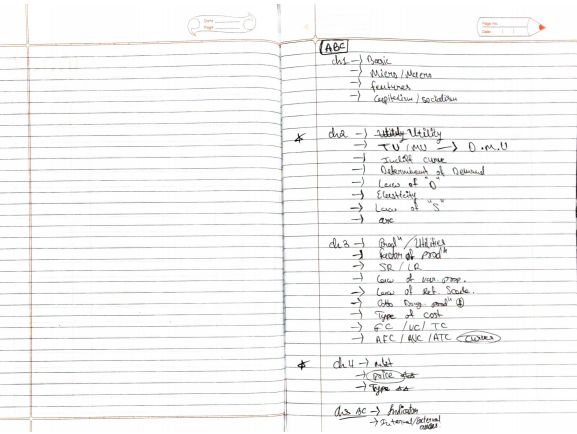 Date
Page
Page No.
Date
ABC
ch1 → Basic
→ Micro / Macro
→ features
→ Capitalism / socialism
ch2 → Utility Utility
→ TU / MU → D.M.U
→ Indiff curve
→ Determinant of Demand
→ Law of "D"
→ Elasticity
→ Law of "S"
→
ch3 → Prodⁿ / Utilities
→ factor of Prodⁿ
→ SR / LR
→ Law of var. prop.
→ Law of Ret. Scale.
→ Cobb Doug. prodⁿ
→ Type of cost
→ FC / VC / TC
→ AFC / AVC / ATC curves
ch4 → mkt
→ Price
→ Type
ch5 BC → Indicator
→ Internal / External